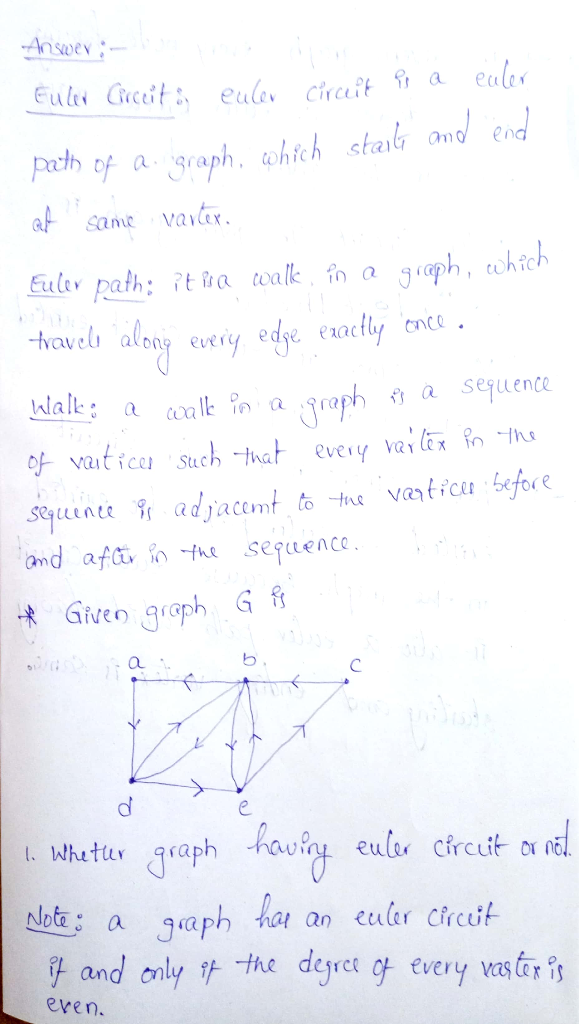 Answer :-
Euler Circuit :, euler circuit is a euler
path of a graph. which starts and end
at same vartex.
Euler path: it is a walk in a graph, which
travels along every edge exactly once.
Walk: a walk in a graph is a sequence
of vartices such that every vartex in the
sequence is adjacemt to the vartices before
and after in the sequence.
* Given graph G is
a b. c
d e
1. Whether graph having euler circuit or not.
Note: a graph has an euler circuit
if and only if the degree of every vartex is
even.